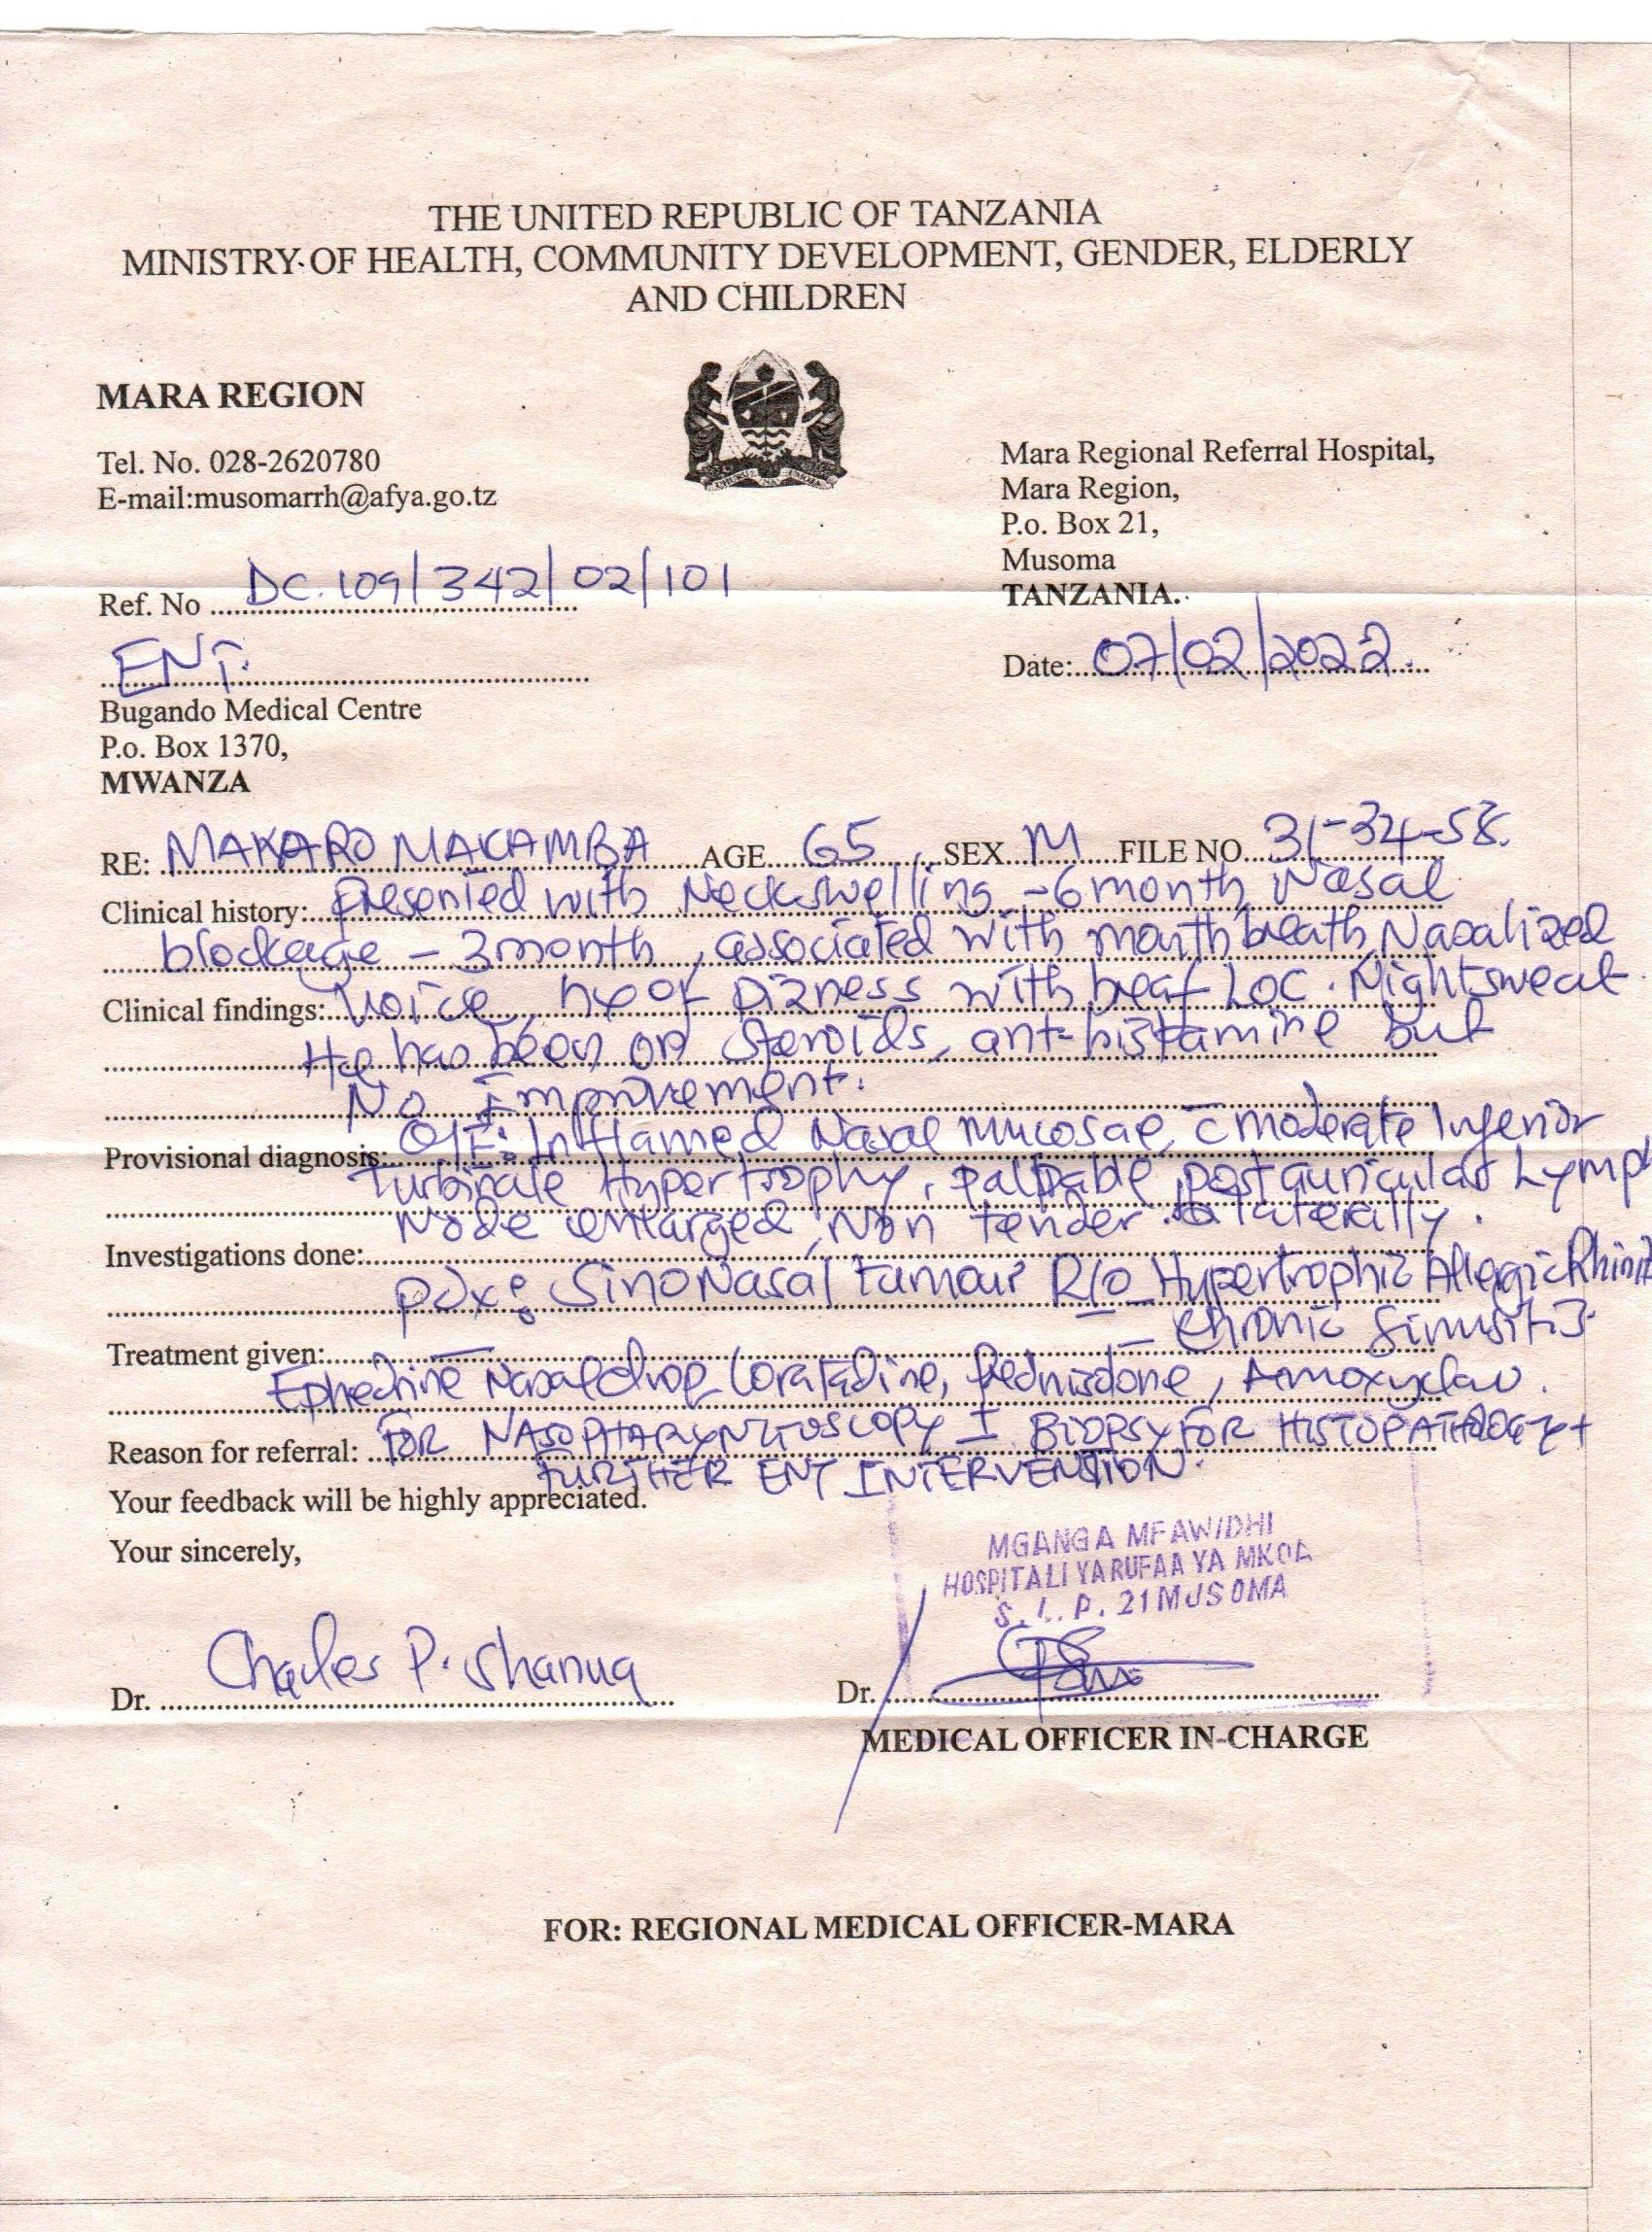 THE UNITED REPUBLIC OF TANZANIA
MINISTRY OF HEALTH, COMMUNITY DEVELOPMENT, GENDER, ELDERLY
AND CHILDREN
MARA REGION
Tel. No. 028-2620780
E-mail:musomarrh@afya.go.tz
Mara Regional Referral Hospital,
Mara Region,
P.o. Box 21,
Musoma
TANZANIA.
Ref. No DC.109/342/02/101
Date: 07/02/2022.
ENT.
Bugando Medical Centre
P.o. Box 1370,
MWANZA
RE: MAKARO MAKAMBA AGE 65 SEX M FILE NO 31-34-58.
Clinical history: presented with Neck swelling - 6 month, Nasal
blockage - 3 month, associated with mouth breath, Nasalized
Clinical findings: voice, hx of Dizness with breaf LOC. Nightsweat.
He has been on steroids, ant-histamine but
No Improvement.
Provisional diagnosis: O/E: Inflamed Nasal mucosae, c̄ moderate Inferior
turbinate Hypertrophy, palpable postauricular Lymph
Node enlarged, Non tender bilaterally.
Investigations done:
pdx: SinoNasal Tumour R/o Hypertrophic Allergic Rhinit
- Chronic Sinusitis.
Treatment given:
Ephedrine Nasal drop, Loratadine, Prednisolone, Amoxyclav.
Reason for referral: FOR NASOPHARYNGOSCOPY ± BIOPSY FOR HISTOPATHOLOGY +
FURTHER ENT INTERVENTION.
Your feedback will be highly appreciated.
Your sincerely,
MGANGA MFAWIDHI
HOSPITALI YA RUFAA YA MKOA
S.L.P. 21 MUSOMA
Dr. Charles P. Shanua
Dr.
MEDICAL OFFICER IN-CHARGE
FOR: REGIONAL MEDICAL OFFICER-MARA